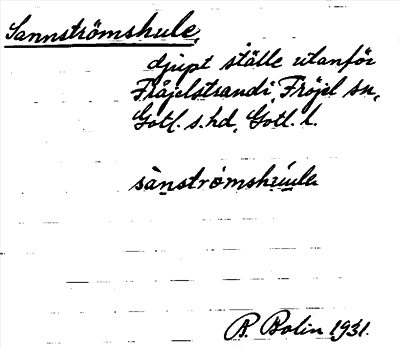 Sannströmshule,
djupt ställe utanför
Fröjelstrand i Fröjel sn,
Gotl. s. hd, Gotl. l.
sànströmshúule
R. Bolin 1931.